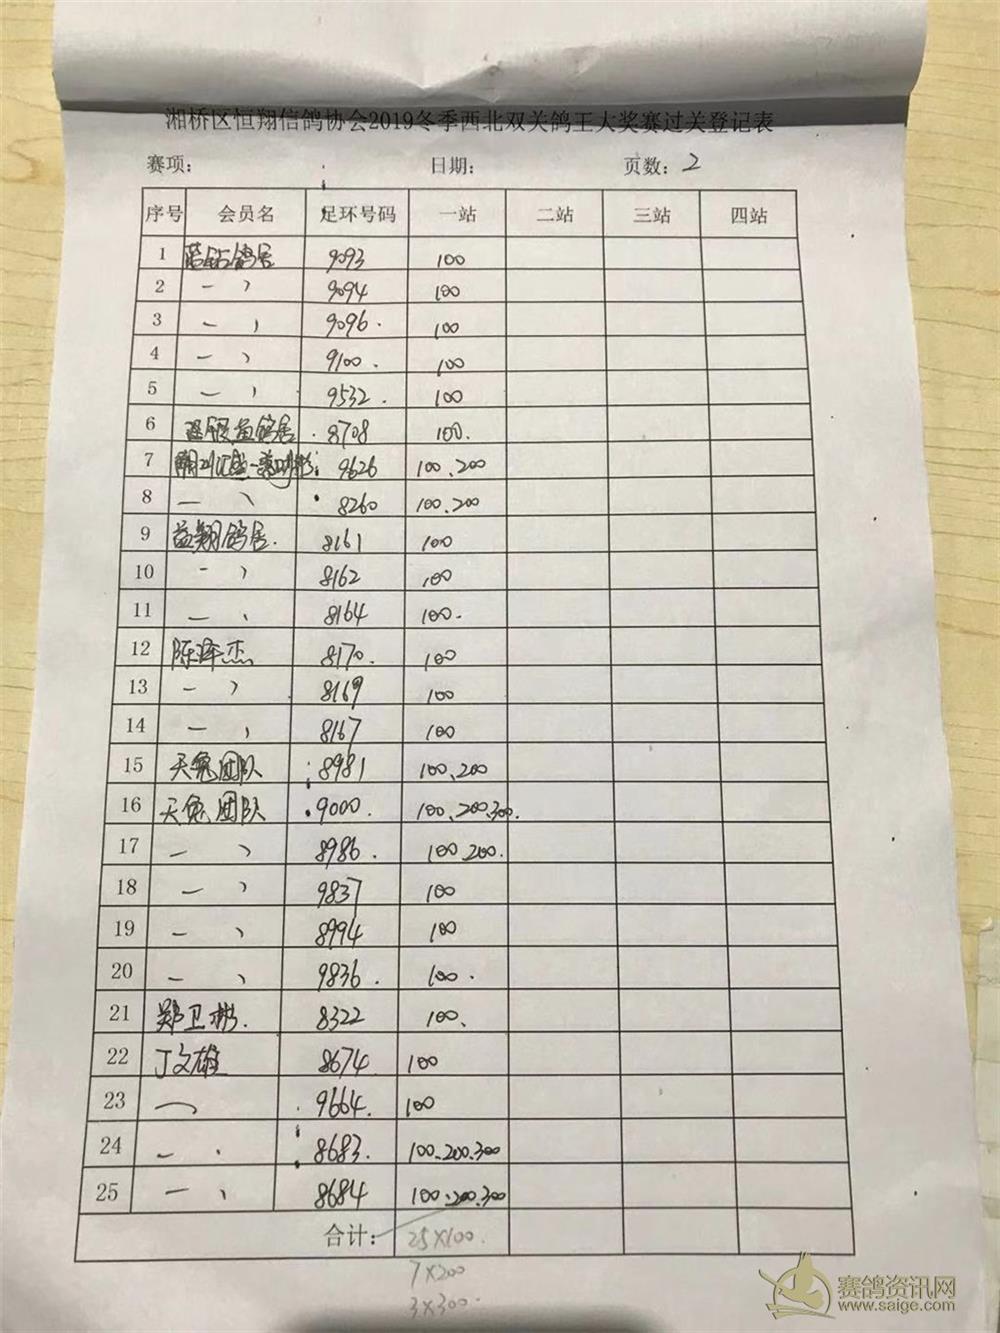 湘桥区恒翔信鸽协会2019冬季西北双关鸽王大奖赛过关登记表
赛项: 日期: 页数: 2
序号 会员名 足环号码 一站 二站 三站 四站
1 蓝钻鸽居 9093 100
2 一 ) 9094 100
3 一 ) 9096. 100
4 一 ) 9100. 100
5 一 ) 9532. 100
6 鸽居 8708 100.
7 9626 100.200
8 一 ) 8260 100.200
9 益翔鸽居. 8161 100
10 一 ) 8162 100
11 一 、 8164 100.
12 陈泽杰 8170. 100
13 一 ) 8169 100
14 一 , 8167 100
15 天兔团队 8981 100、200
16 天兔团队 9000. 100.200.300.
17 一 ) 8986. 100.200.
18 一 ) 9837 100
19 一 、 8994 100
20 一 、 9836. 100.
21 郑卫彬. 8322 100、
22 丁文雄 8674 100
23 一 9664. 100
24 一 . 8683. 100.200.300
25 一 、 8684 100.200.300
合计: 25×100.
7×200
3×300.
赛鸽资讯网
www.saige.com